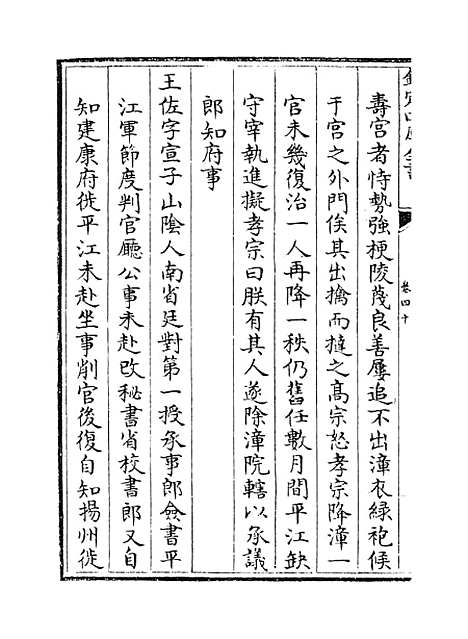 欽定四庫全書
卷四十
壽宫者恃勢強梗陵蔑良善屢追不出漳衣緑袍候
于宫之外門俟其出擒而撻之髙宗怒孝宗降漳一
官未幾復治一人再降一秩仍舊任數月間平江缺
守宰執進擬孝宗曰朕有其人遂除漳院轄以承議
郎知府事
王佐字宣子山陰人南省廷對第一授承事郎僉書平
江軍節度判官廳公事未赴改秘書省校書郎又自
知建康府徙平江未赴坐事削官後復自知揚州徙